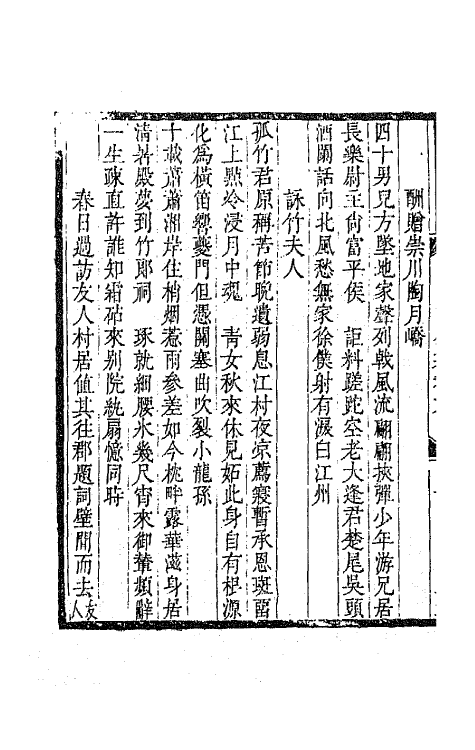 酬贈崇川陶月嶠
四十男兒方墜地家聲列戟風流翩翩挾彈少年游兄居
長樂尉主尙富平侯　詎料蹉跎空老大逢君楚尾吳頭
酒闌話向北風愁無家徐僕射有淚白江州
詠竹夫人
孤竹君原稱苦節晚遺弱息江村夜凉薦寢暫承恩斑㽞
江上㸃冷浸月中魂　靑女秋來休見妬此身自有根源
化爲橫笛響夔門但憑關塞曲吹裂小龍孫
十載蕭蕭湘岸住梢烟惹雨參差如今桃畔露華滋身居
淸暑殿夢到竹郞祠　琢就細腰冰幾尺宵來御輦頻辭
一生疎直許誰知霜砧來別院紈扇憶同時
春日過訪友人村居值其往郡題詞壁間而去友人